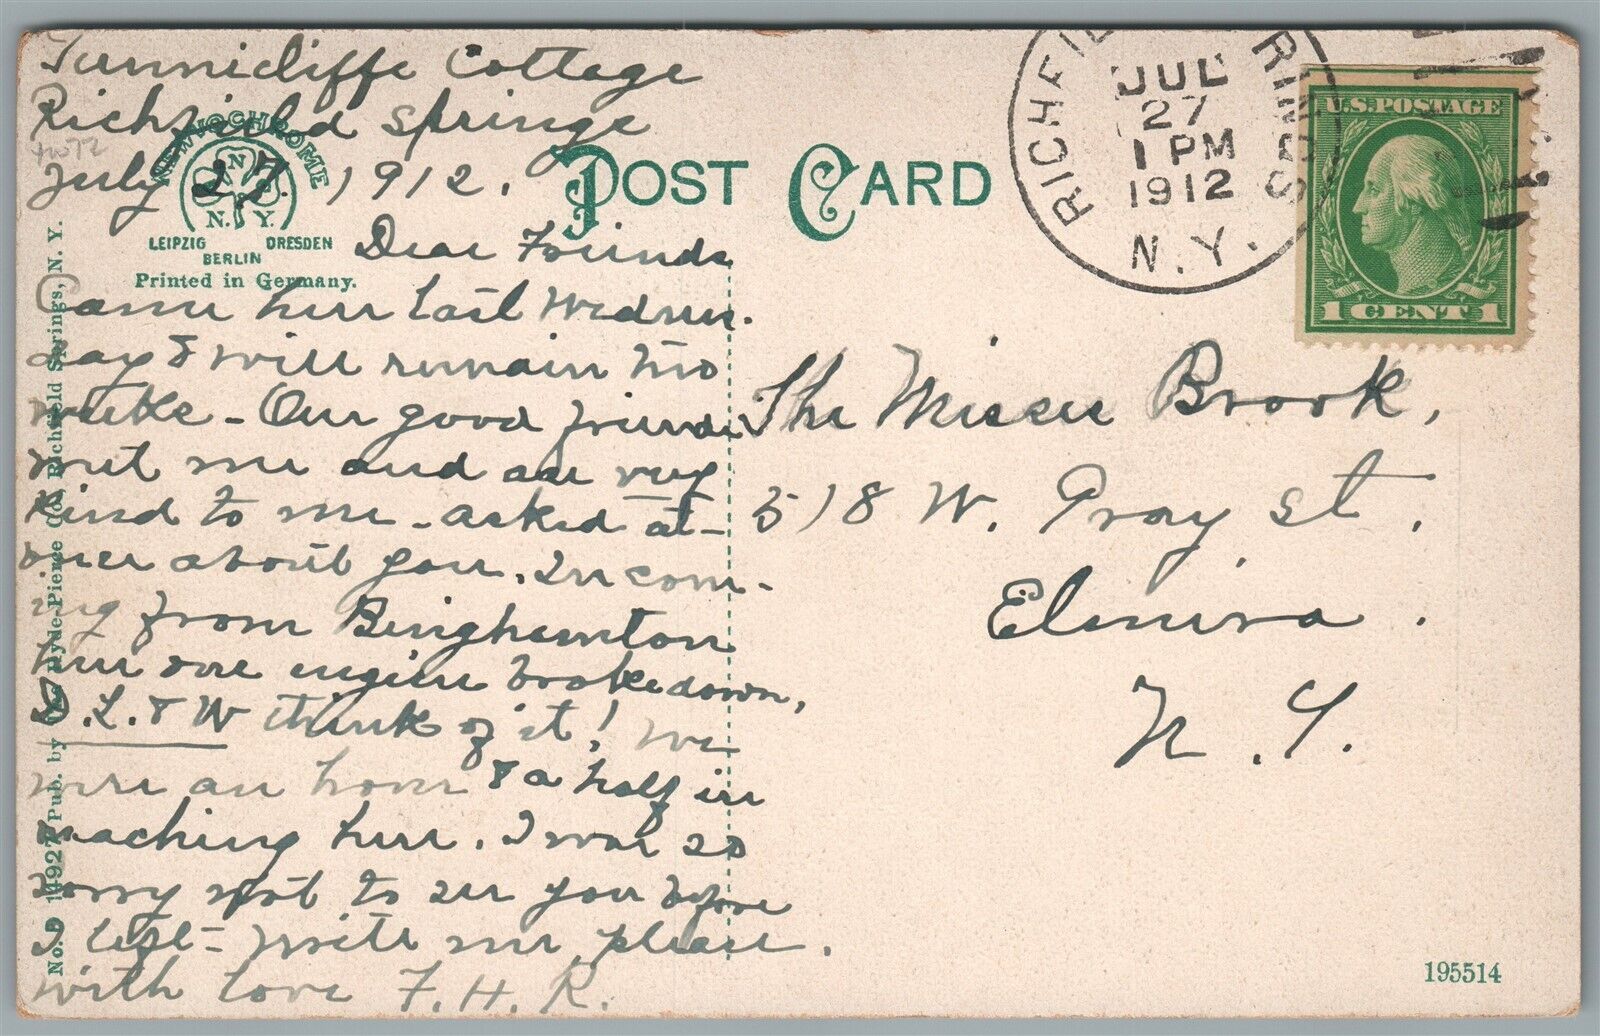 Tunnicliffe Cottage
Richfield Springs
July 27, 1912.
Dear Friends
Came here last Wednes-
day & will remain two
weeks - Our good friends
met me and are very
kind to me - asked at-
once about you. In com-
ing from Binghamton
here one engine broke down,
D. L. & W think of it! We
were an hour & a half in
reaching here. I was so
sorry not to see you before
I left - write me, please.
with love F. H. R.
NEWVOCHROME
N
N. Y.
LEIPZIG DRESDEN
BERLIN
Printed in Germany.
No. D 14927 Pub. by The Hyde-Pierce Co., Richfield Springs, N. Y.
POST CARD
RICHFIELD SPRINGS
JUL
27
1 PM
1912
N. Y.
U.S. POSTAGE
1 CENT 1
The Misses Brook,
518 W. Gray St.
Elmira.
N. Y.
195514